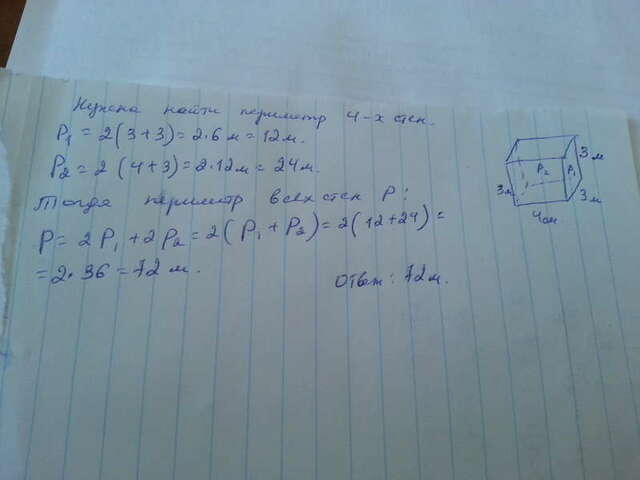 Нужна найти периметр 4-х стен.
P₁ = 2(3+3)=2·6 м = 12 м.
P₂ = 2 (4+3)=2·12 м = 24 м.
Тогда периметр всех стен P:
P = 2P₁ + 2P₂ = 2(P₁ + P₂) = 2(12+24) =
= 2·36 = 72 м.
Ответ: 72 м.
3 м
P₂ P₁
3 м
3 м
4 м